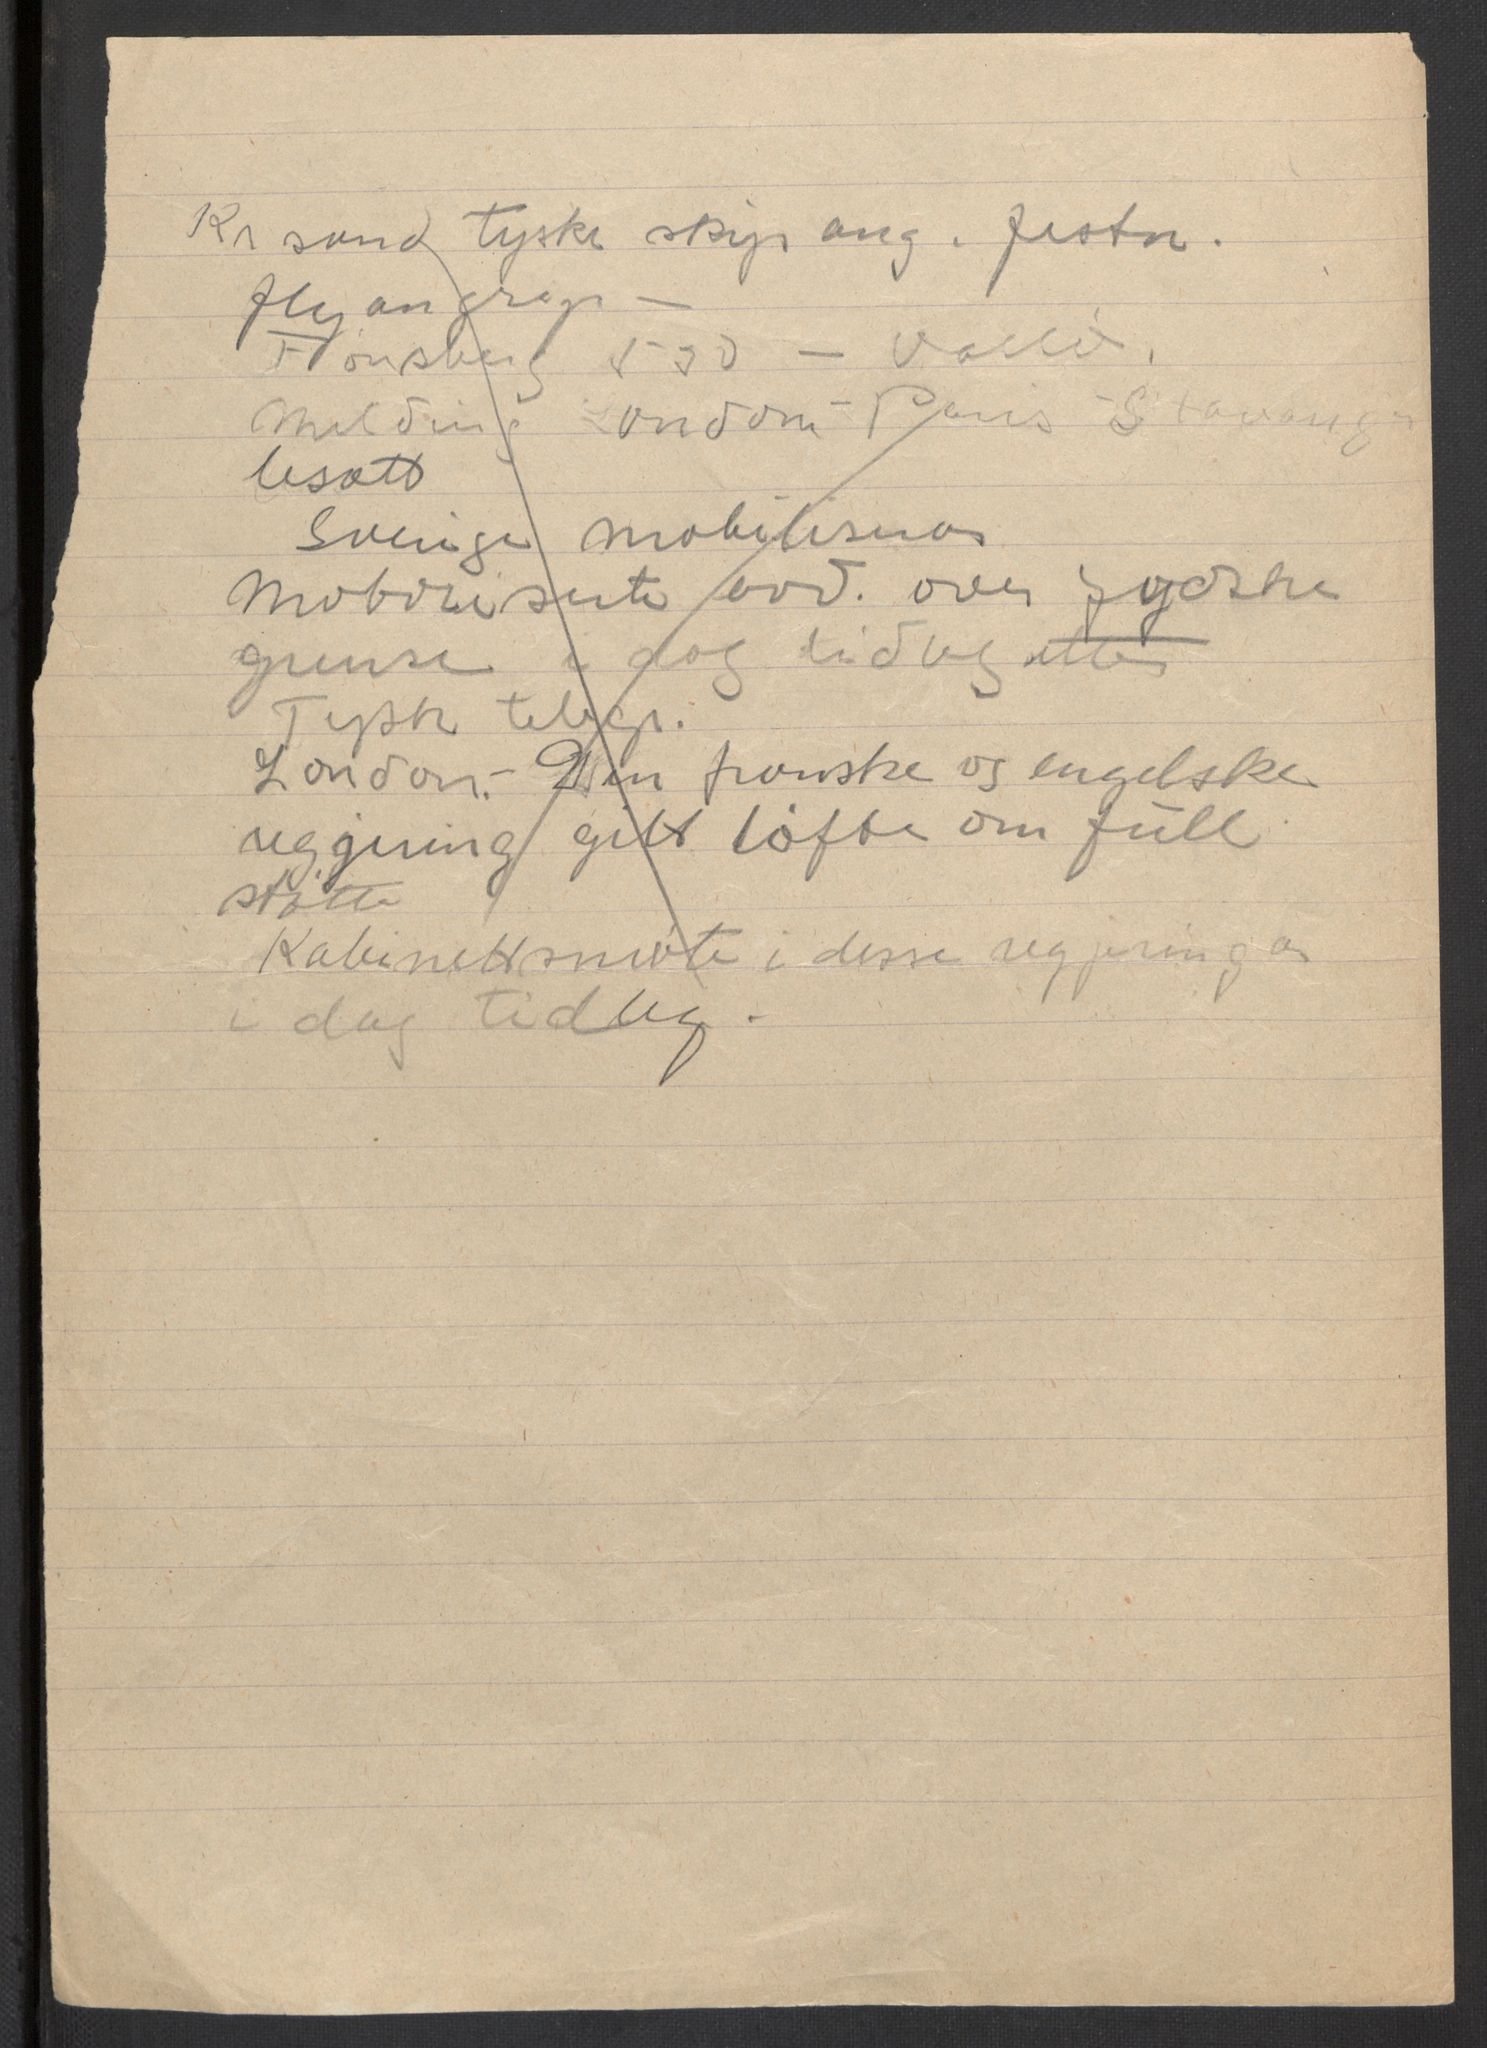 Kr sand tyske skip ang. festn.
flyangrep —
Tønsberg 530 — Vallø.
Melding London - Paris - Stavanger
besatt
Sverige mobiliserar
Motoriserte avd. over jydske
grense i dag tidleg
Tysk telegr.
London.- Den franske og engelske
regjering gitt løfte om full
støtte
Kabinettsmøte i desse regjeringar
i dag tidleg.